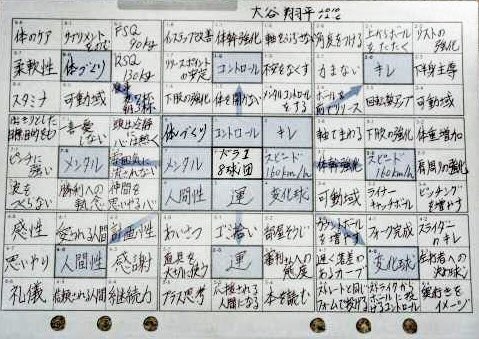 大谷 翔平
体のケア サプリメントをのむ FSQ 90kg インステップ改善 体幹強化 軸をぶらさない 角度をつける 上からボールをたたく リストの強化
柔軟性 体づくり RSQ 130kg リリースポイントの安定 コントロール 不安をなくす 力まない キレ 下半身主導
スタミナ 可動域 下肢の強化 体を開かない メンタルコントロールをする ボールを前でリリース 回転数アップ 可動域
一喜一憂しない 頭は冷静に心は熱く 体づくり コントロール キレ 軸でまわる 下肢の強化 体重増加
ピンチに強い メンタル 雰囲気に流されない メンタル ドラ1 8球団 スピード 160km/h 体幹強化 スピード 160km/h 肩周りの強化
波をつくらない 勝利への執念 仲間を思いやる心 人間性 運 変化球 可動域 ライナーキャッチボール ピッチングを増やす
感性 愛される人間 計画性 あいさつ ゴミ拾い 部屋そうじ カウントボールを増やす フォーク完成 スライダーのキレ
思いやり 人間性 感謝 道具を大切に扱う 運 審判さんへの態度 遅く落差のあるカーブ 変化球 左打者への決め球
礼儀 信頼される人間 継続力 プラス思考 応援される人間になる 本を読む ストレートと同じフォームで投げる ストライクからボールに投げるコントロール 奥行きをイメージ